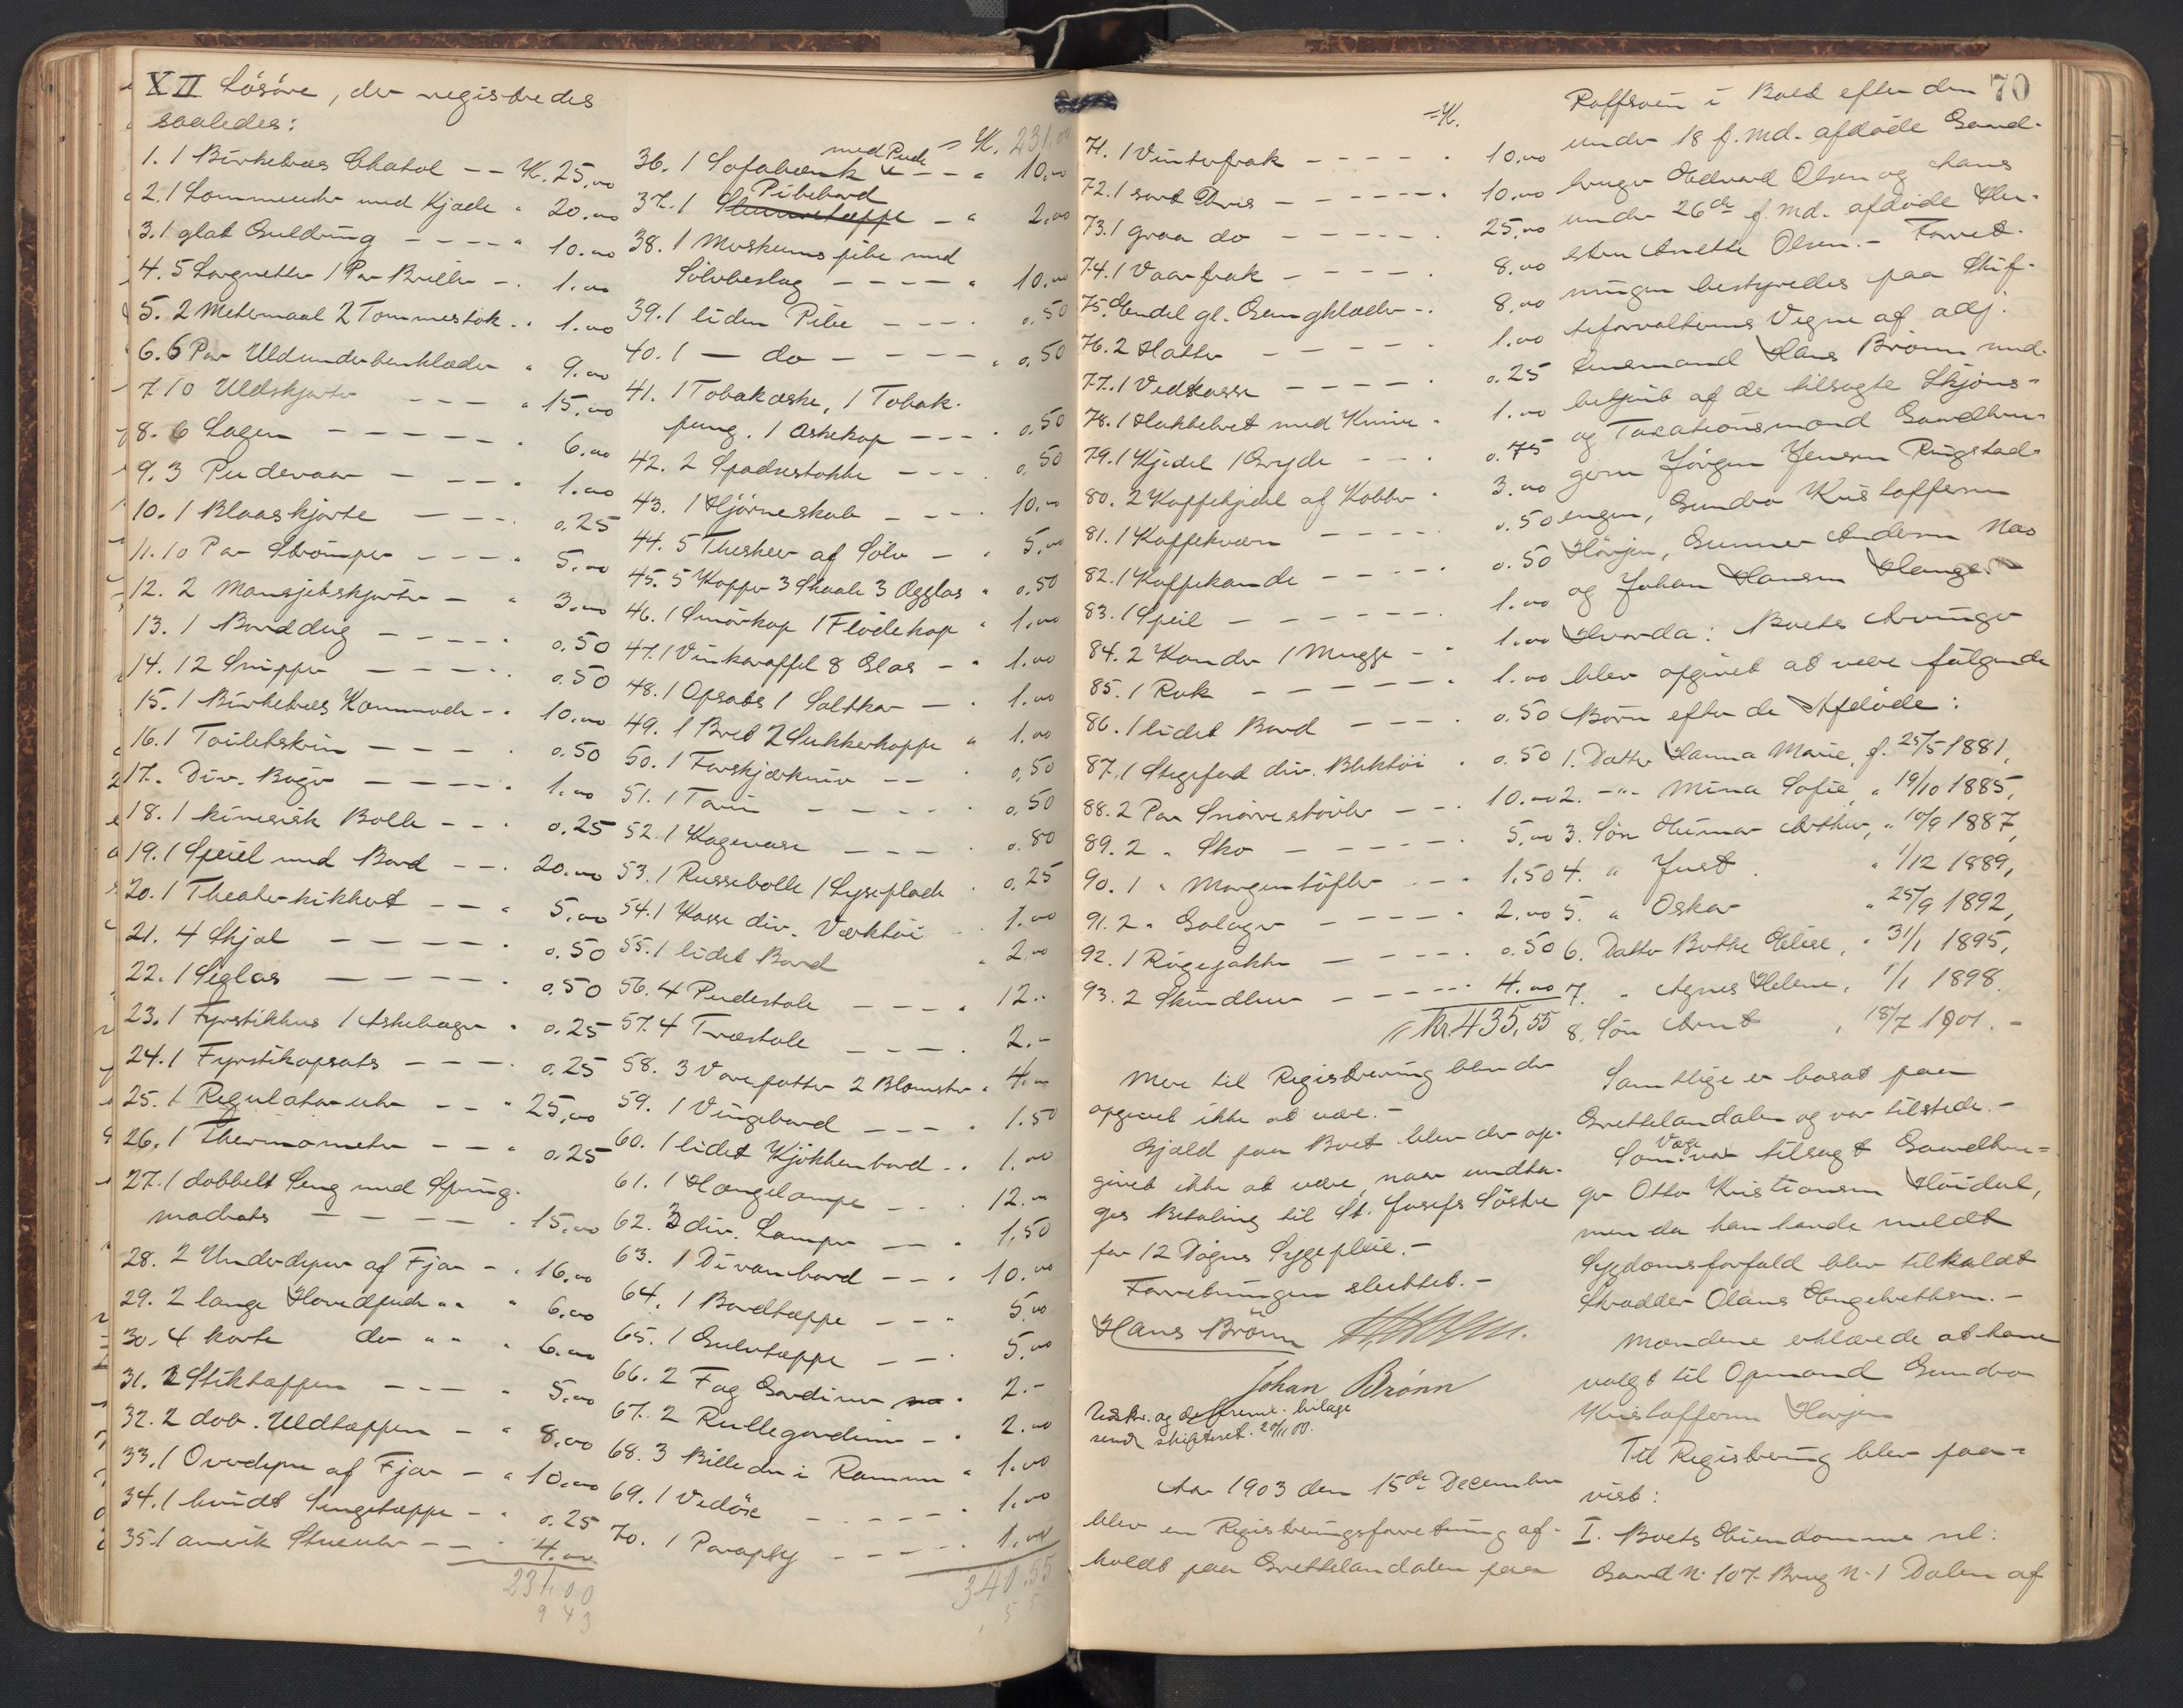 XII Løsøre, der registredes
saaledes:
1. 1 Birketræs Chatol -- Kr. 25,00
2. 1 Lommeuhr med Kjæde " 20.00
3. 1 glat Guldring ---- " 10.00
4. 5 Lorgnetter 1 Par Briller - . 1.00
5. 2 Metermaal 2 Tommestok . " 1.00
6. 6 Par Uldunderbenklæder " 9.00
7. 10 Uldskjorter --- " 15.00
8. 6 Lagen ----- . 6.00
9. 3 Pudevaar - --- " 1.00
10. 1 Blaaskjorte --- . 0.25
11. 10 Par Strømper ---- " 5.00
12. 2 Mansjetskjorter - " 3.00
13. 1 Borddug ---- . 0.50
14. 12 Snipper ---- . 0.50
15. 1 Birketræs Kommode - . 10.00
16. 1 Toiletskrin --- . 0.50
17. Div. Bøger ---- . 1.00
18. 1 kinesisk Bolle -- . 0.25
19. 1 Speil med Bord -- . 20.00
20. 1 Theaterkikkert -- " 5.00
21. 4 Skjal ---- . 0.50
22. 1 Seglas ---- . 0.50
23. 1 Fyrstikhus 1 Askebæger " 0.25
24. 1 Fyrstikopsats --- . 0.25
25. 1 Regulatoruhr -- " 25,00
26. 1 Thermometer --- " 0.25
27. 1 dobbelt Seng med Spring-
madrats ---- . 15.00
28. 2 Underdyner af Fjær - . 16.00
29. 2 lange Hovedpuder " " " 6.00
30. 4 korte do " " " 6.00
31. 2 Stiktæpper --- " 5.00
32. 2 dob. Uldtæpper - " 8.00
33. 1 Overdyne af Fjær - " 10.00
34. 1 hvidt Sengetæppe - . 0.25
35. 1 amerik Stueuhr -- . 4.00
231.00
943
= Kr. 231.00
36. 1 Sofabænk med Pude -- " 10.00
37. 1 Pibebord - " 2.00
38. 1 Merskumspibe med
Sølvbeslag ---- " 10.00
39. 1 liden Pibe --- . 0.50
40. 1 — do ---- " 0.50
41. 1 Tobakæske, 1 Tobak-
pung. 1 Askekop --- . 0.50
42. 2 Spadserstokke --- . 0,50
43. 1 Hjørneskab --- . 10.00
44. 5 Theskeer af Sølv - . 5.00
45. 5 Kopper 3 Skaale 3 Ægglas " 0.50
46. 1 Smørkop 1 Flødekop " 1.00
47. 1 Vinkaraffel 8 Glas - " 1.00
48. 1 Opsats 1 Saltkar - . 1.00
49. 1 Bret 2 Sukkerkopper " 1.00
50. 1 Forskjærkniv -- . 0,50
51. 1 Tarin ---- . 0.50
52. 1 Kagevase --- . 0.80
53. 1 Russebolle 1 Lyseplade . 0.25
54. 1 Kasse div. Værktøi . . 1.00
55. 1 lidet Bord " 2.00
56. 4 Pudestole --- . 12.-
57. 4 Træstole --- . 2.-
58. 3 Vorepotter 2 Blomster . 4.00
59. 1 Vingebord --- . 1.50
60. 1 lidet Kjøkkenbord . . 1.00
61. 1 Hængelampe -- . 12.00
62. 3 div. Lamper -- " 1,50
63. 1 Divanbord -- . 10.00
64. 1 Bordtæppe --- . 5.00
65. 1 Gulvtæppe --- . 5.00
66. 2 Fag Gardiner . 2.-
67. 2 Rullegardiner - . 2.00
68. 3 Billeder i Ramme " 1.00
69. 1 Vedøse ----- . 1.00
70. 1 Paraply ----- 1.00
340.55
=Kr.
71. 1 Vinterfrak ---- . 10.00
72. 1 sort Dres ----- . 10.00
73. 1 graa do ----- . 25.00
74. 1 Vaarfrak ---- . 8.00
75. Endel gl. Gangklæder - . 8.00
76. 2 Hatter ----- . 1.00
77. 1 Vedkasse ---- . 0.25
78. 1 Hakkebret med Knive . 1.00
79. 1 Kjedel 1 Gryde --- . 0.75
80. 2 Kaffekjedel af Kobber . 3.00
81. 1 Kaffekværn ---- . 0.50
82. 1 Kaffekande ---- . 0.50
83. 1 Speil ----- . 1.00
84. 2 Kander 1 Mugge - . 1.00
85. 1 Rok ------ . 1.00
86. 1 lidet Bord --- . 0.50
87. 1 Stegefad div. Bliktøi . 0.50
88. 2 Par Snørestøvler -- . 10.00
89. 2 " Sko ----- . 5.00
90. 1 " Morgentøfler -- . 1.50
91. 2 " Galoger ---- " 2.00
92. 1 Røgejakke ---- . 0.50
93. 2 Skindluer ----- . 4.00
Kr. 435,55
Mere til Registrering blev der
opgivet ikke at være.-
Gjæld paa Boet blev der op-
givet ikke at være, naar undta-
ges Betaling til St. Josefs Søstre
for 12 Døgns Sygepleie.-
Forretningen sluttet.-
Hans Brønn
Johan Brønn
Udskr. og de freml. bilage
sendt skifteret. 20/11 00.
Aar 1903 den 15de December
blev en Registreringsforretning af-
holdt paa Grettelandalen paa
70
Raffsøen i Boet efter den
under 18 f. Md. afdøde Gaard-
bruger Edvard Olsen og hans
under 26de f. Md. afdøde Hu-
stru Anette Olsen.- Forret-
ningen bestyredes paa Skif-
teforvalterens Vegne af adj.
Lensmand Hans Brønn med
betjent af de tilsagte Skjøns-
og Taxationsmænd Gaardbru-
gerne Jørgen Jensen Ringstad-
engen, Gundro Kristoffersen
Hövjen, Gunner Andersen Næs
og Johan Hansen Hauger
Hvorda: Boets Arvinger
blev opgivet at være følgende
Børn efter de Afdøde:
1. Datter Hanna Marie, f. 25/5 1881,
2. -"- Mina Sofie, " 19/10 1885,
3. Søn Hilmar Arthur, " 10/9 1887,
4. " Just " 1/12 1889,
5. " Oskar " 25/9 1892,
6. Datter Borthe Elise, " 31/1 1895,
7. " Agnes Helene, 1/1 1898.
8. Søn Arnt , 18/7 1901.-
Samtlige er bosat paa
Grettelandalen og var tilstede.-
Som Værge var tilsagt Gaardbru=
ger Otto Kristiansen Høidal,
men da han havde meldt
Sygdomsforfald blev tilkaldt
Skrædder Olaus Engebrethsen.-
Mændene erklærede at have
valgt til Opmand Gundro
Kristoffersen Hovjen
Til Registrering blev paa-
vist:
I. Boets Eiendomme nl:
Gaard N. 107 Brug N. 1 Dalen af